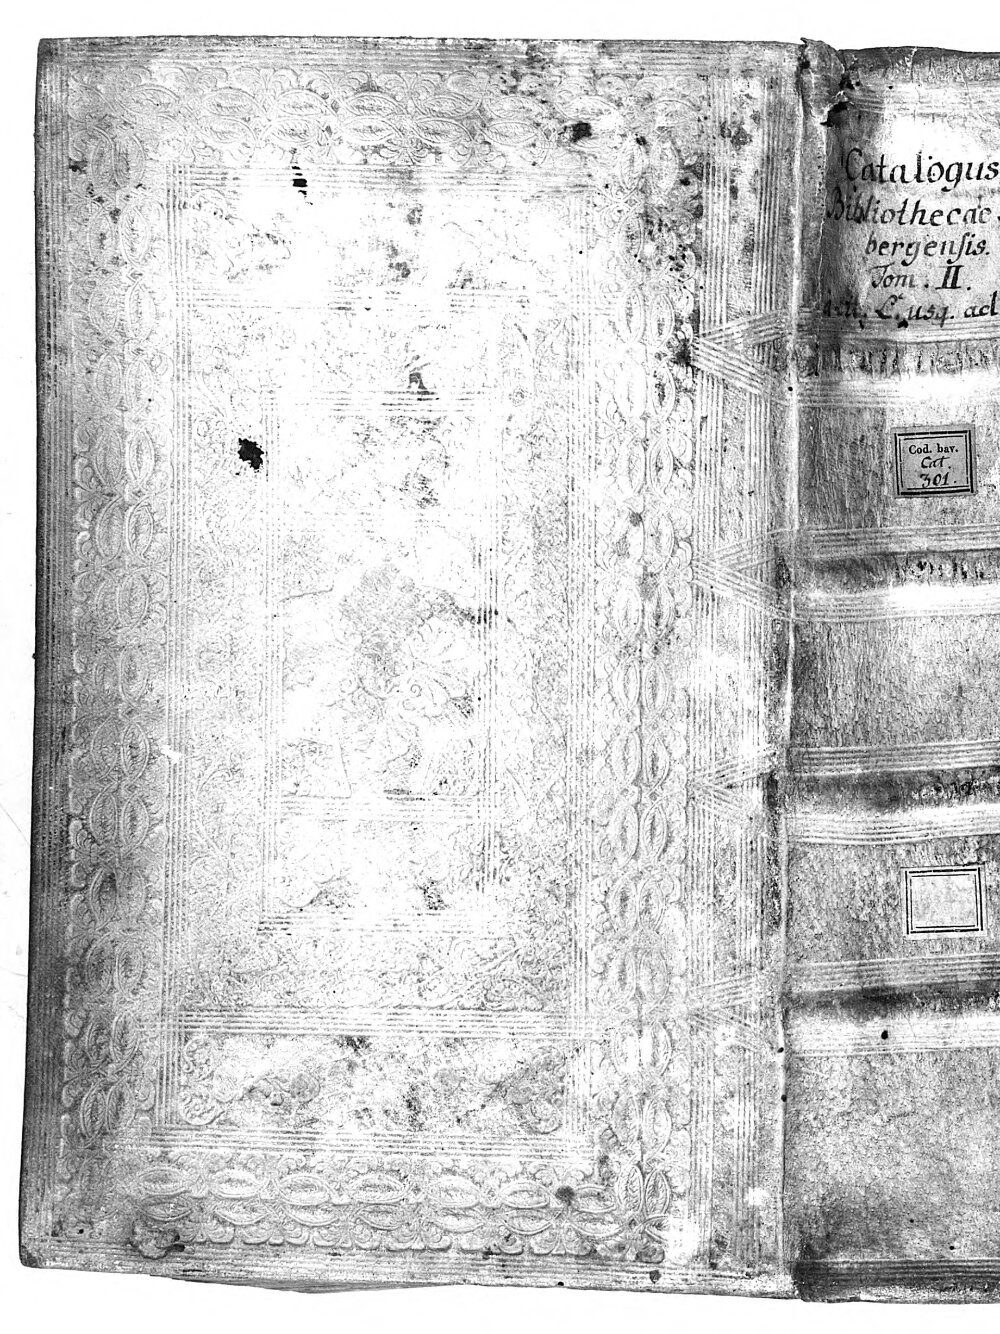 Catalogus
Bibliothecae
bergensis.
Tom. II.
L. usq. ad
Cod. bav.
Cat.
301.